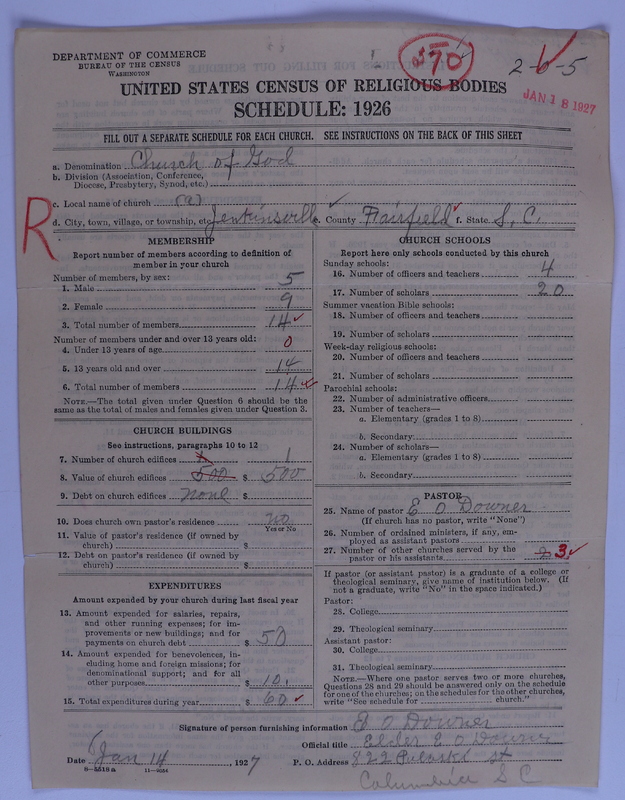 570
2-6-5
JAN 18 1927
DEPARTMENT OF COMMERCE
BUREAU OF THE CENSUS
WASHINGTON
UNITED STATES CENSUS OF RELIGIOUS BODIES
SCHEDULE: 1926
FILL OUT A SEPARATE SCHEDULE FOR EACH CHURCH. SEE INSTRUCTIONS ON THE BACK OF THIS SHEET
a. Denomination Church of God
b. Division (Association, Conference,
Diocese, Presbytery, Synod, etc.)
R
c. Local name of church (a)
d. City, town, village, or township, etc. Jenkinsville e. County Fairfield f. State S. C.
MEMBERSHIP
Report number of members according to definition of
member in your church
Number of members, by sex:
1. Male 5
2. Female 9
3. Total number of members 14
Number of members under and over 13 years old:
4. Under 13 years of age 0
5. 13 years old and over 14
6. Total number of members 14
NOTE.—The total given under Question 6 should be the
same as the total of males and females given under Question 3.
CHURCH BUILDINGS
See instructions, paragraphs 10 to 12
7. Number of church edifices 1
8. Value of church edifices 500 $ 500
9. Debt on church edifices none $
10. Does church own pastor's residence no
Yes or No
11. Value of pastor's residence (if owned by
church) $
12. Debt on pastor's residence (if owned by
church) $
EXPENDITURES
Amount expended by your church during last fiscal year
13. Amount expended for salaries, repairs,
and other running expenses; for im-
provements or new buildings; and for
payments on church debt $ 50
14. Amount expended for benevolences, in-
cluding home and foreign missions; for
denominational support; and for all
other purposes $ 10.
15. Total expenditures during year $ 60
CHURCH SCHOOLS
Report here only schools conducted by this church
Sunday schools:
16. Number of officers and teachers 4
17. Number of scholars 20
Summer vacation Bible schools:
18. Number of officers and teachers
19. Number of scholars
Week-day religious schools:
20. Number of officers and teachers
21. Number of scholars
Parochial schools:
22. Number of administrative officers
23. Number of teachers—
a. Elementary (grades 1 to 8)
b. Secondary
24. Number of scholars—
a. Elementary (grades 1 to 8)
b. Secondary
PASTOR
25. Name of pastor E O Downer
(If church has no pastor, write "None")
26. Number of ordained ministers, if any, em-
ployed as assistant pastors
27. Number of other churches served by the
pastor or his assistants 2 3
If pastor (or assistant pastor) is a graduate of a college or
theological seminary, give name of institution below. (If
not a graduate, write "No" in the space indicated.)
Pastor:
28. College
29. Theological seminary
Assistant pastor:
30. College
31. Theological seminary
NOTE.—Where one pastor serves two or more churches,
Questions 28 and 29 should be answered only on the schedule
for one of the churches; on the schedules for the other churches,
write "See schedule for church."
Signature of person furnishing information E O Downer
Official title Elder E O Downer
Date Jan 14, 1927 P. O. Address 822 Pulaski st
8-5518a 11-9034
Columbia S C